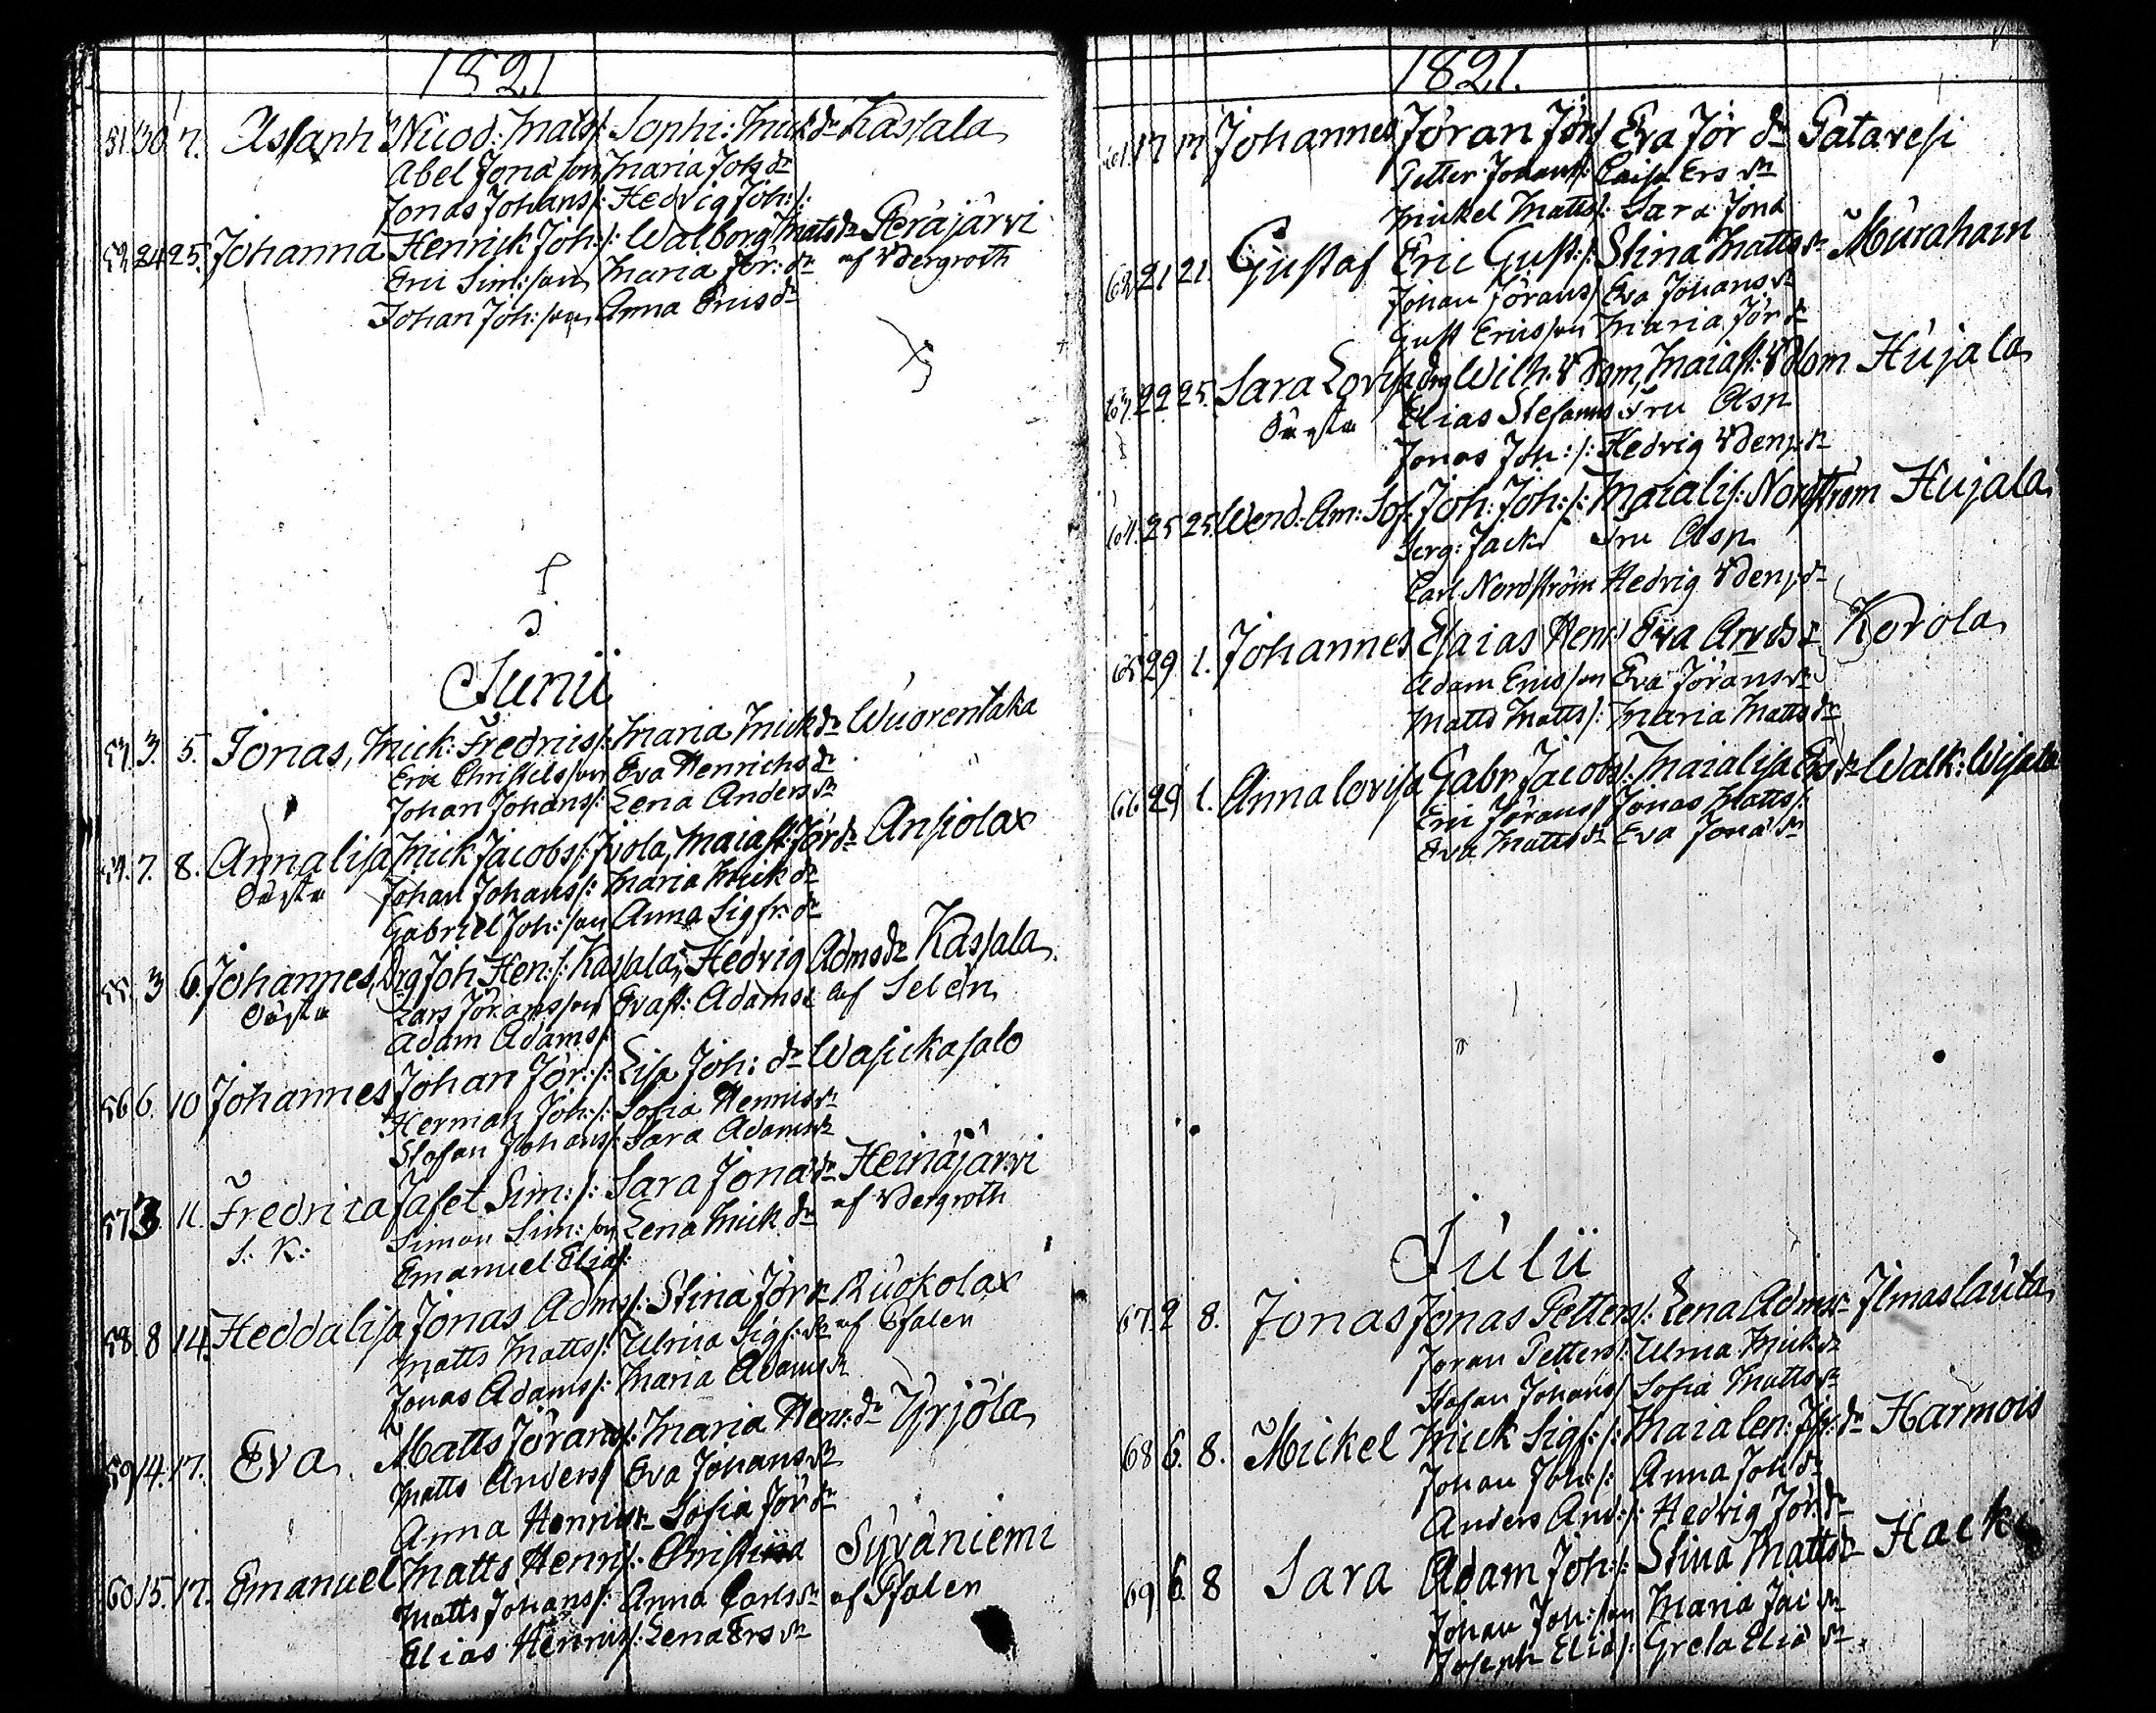 1821
51. 30 7. Assarth Nicod: Mats/: Sophi: Mickdr Kassala
Abel Jona son Maria Joh dr
Jonas Johans/: Hedvig Joh:/:
52 24 25. Johanna Henrick Joh:/: Walborg Matsdr Peräjärvi
Eric Sim: son Maria Jör: dr af Wergroth
Johan Joh: son Anna Ericsdr
Junii
53. 3. 5. Jonas, Mick: Fredrics/: Maria Mickdr Wuorentaka
Eric Christers son Eva Henrichs dr
Johan Johans/: Lena Anders dr
54. 7. 8. Annalisa Mick Jacobs/: Ivola, Maiast: Jördr Ansiolax
Oägta Johan Johans/: Maria Mick dr
Gabriel Joh: son Anna Sigfr: dr
55. 3 6. Johannes, Drg Joh Hen:/: Kassala, Hedvig Admsdr Kassala
Oägta Lars Jörans son Evast: Adams af Selén
Adam Adams/:
56 6. 10 Johannes Johan Jör:/: Lisa Joh: dr Wasickasalo
Herman Joh:/: Sofia Henricsdr
Stefan Johans/: Sara Adamsdr
57 3 11. Fredrica Jafet Sim:/: Sara Jona dr Heinäjärvi
S: K: Simon Sim: son Lena Mick dr af Wergroth
Emanuel Elias/:
58. 8 14. Heddalisa Jonas Adms/: Stina Jör dr Ruokolax
Matts Matts/: Ulrica Sigf: dr af Pfalen
Jonas Adams/: Maria Adamsdr
59 14. 17. Eva Matts Jörans/: Maria Henr: dr Yrjölä
Matts Anders/ Eva Johans dr
Anna Henricsdr Sofia Jör dr
60 15. 17. Emanuel Matts Henrs/: Christina Syväniemi
Matts Johans/: Anna Carls dr af Pfalen
Elias Henrics/: Lena Ers dr
1821.
61. 17 17 Johannes Jöran Jörs/ Eva Jör dr Patavesi
Petter Johans/: Caisa Ers dr
Mickel Matts/: Sara Jona
62 21 21. Gustaf Eric Gust:/: Stina Matts dr Muraham
Johan Jörans/ Eva Johans dr
Gust Erics son Maria Jör dr
63. 22 25. Sara Lovisa drg Wilh: Widbom, Maiast: Widbom Hujala
Oägta Elias Stefans Fru Asp
Jonas Joh:/: Hedvig
64. 25 25. Wend: Am: Sof: Joh: Joh:/: Maialis: Nordström Hujala
Serg: Jack Fru Asp
Carl Nordström Hedvig
65 29 1. Johannes Esaias Henr/ Eva Arvds dr Kerola
Adam Erics son Eva Jörans dr
Matts Matts/: Maria Matts dr
66. 29 1. Anna lovisa Gabr Jacobs/: Maialisa Ers dr Walk: Wisala
Eric Jörans/ Jonas Matts/:
Eva Matts dr Eva Jona dr
Julii
67. 2 8. Jonas Jonas Petters/: Lena Adms dr Ilmaslauta
Joran Petters/: Ulrica Mick dr
Stefan Johans/ Sofia Matts dr
68 6. 8. Mickel Mick Sigf:/: Maialen: dr Harmois
Johan Joh:/: Anna Joh dr
Anders And:/: Hedvig Jör: dr
69 6. 8 Sara Adam Joh:/: Stina Matts dr Hack
Johan Joh: son Maria Jac dr
Joseph Elias/: Greta Elia dr